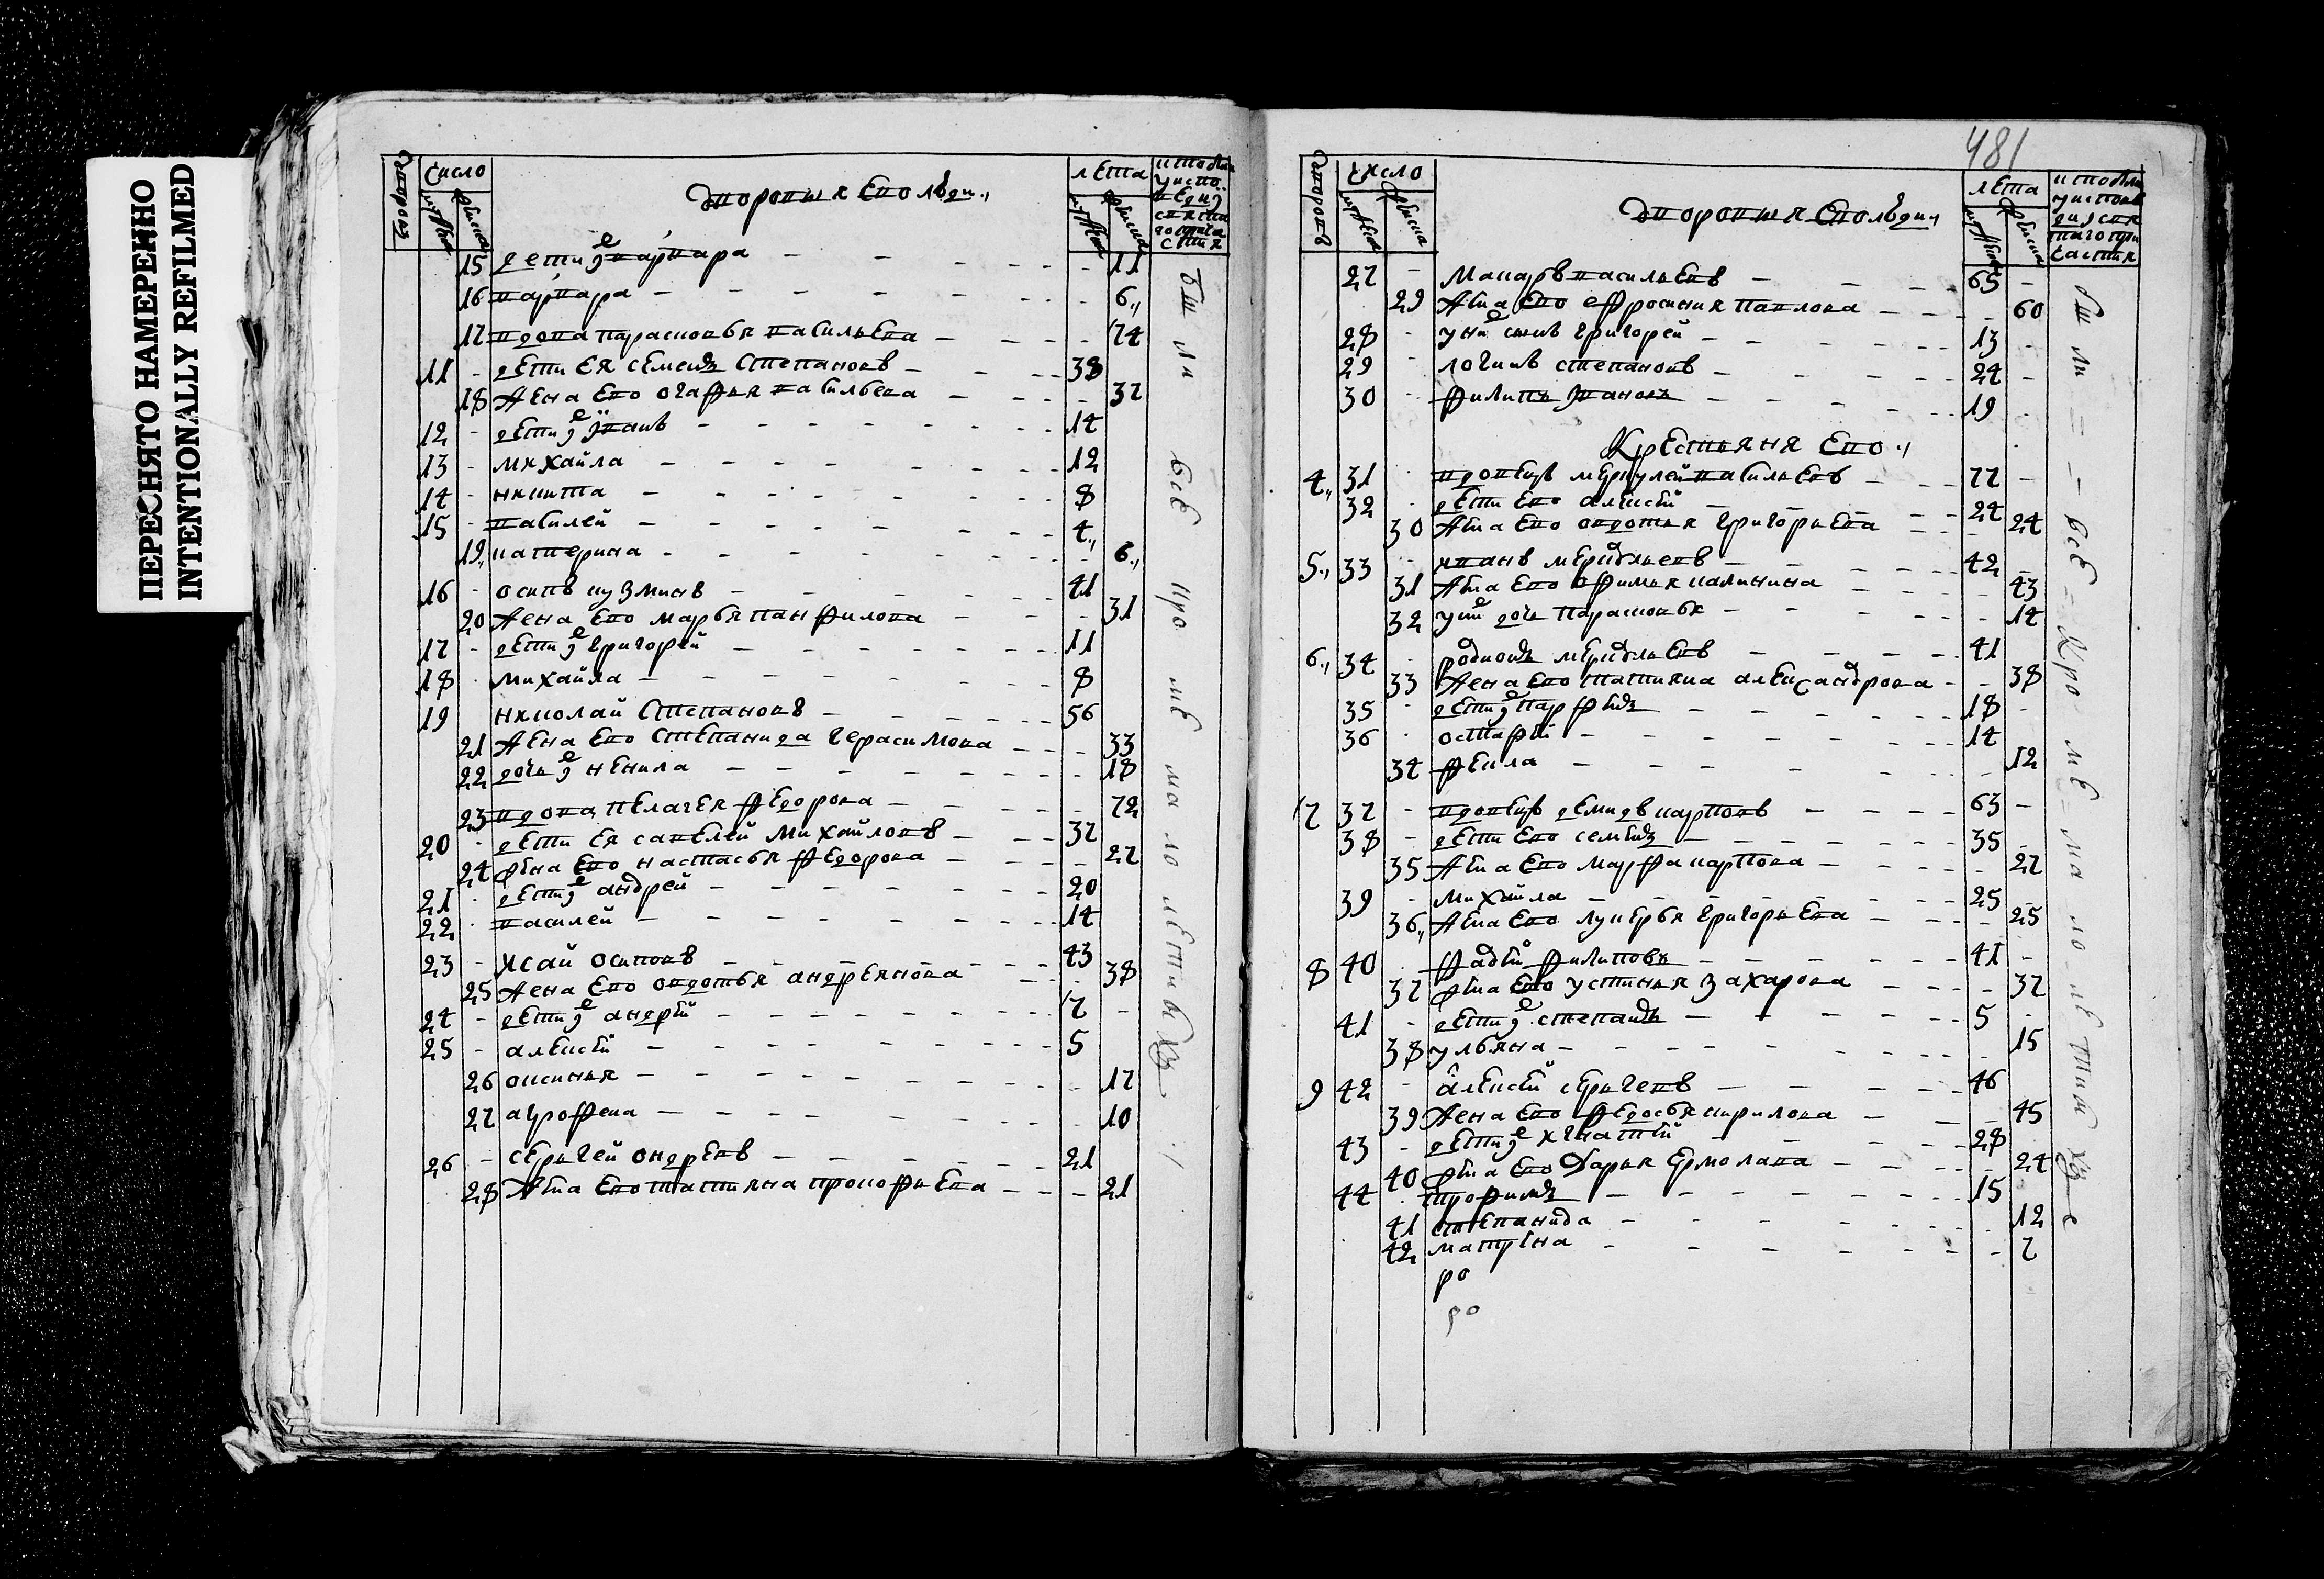 ПЕРЕСНЯТО НАМЕРЕННО
INTENTIONALLY REFILMED
число
дворовыя ево люди
лета
15 дети варвара 11
16 варвара 6
17 вдова парасковья васильева 74
11 дети ея семенъ степановъ 38
18 жена ево огафья васильева 37
12 дети иванъ 14
13 михайла 12
14 никита 8
15 василей 4
19 катерина 6
16 осипъ кузминъ 41
20 жена ево марья панфилова 31
17 дети григорей 11
18 михайла 8
19 николай степановъ 56
21 жена ево степанида герасимова 33
22 дочь ненила 18
23 вдова пелагея федорова 72
20 дети ея савелей михайловъ 37
24 жена ево настасья федорова 27
21 дети андрей 20
22 василей 14
23 исай осиповъ 43
25 жена ево овдотья андреянова 38
24 дети андрей 7
25 алексей 5
26 оксинья 17
27 аграфена 10
26 сергей ондреевъ 21
28 жена ево татияна прокофьева 21
бы ли все кро ме ма ло летныхъ
481
число
дворовыя ево люди
лета
27 макаръ васильевъ 65
29 жена ево ефросиния павлова 60
28 у них сынъ григорей 13
29 логинъ степановъ 24
30 филипъ ивановъ 19
Крестьяня ево
4 31 вдовецъ меркулей васильевъ 77
32 дети ево алексей 24
30 жена ево овдотья григорьева 24
5 33 иванъ меркульевъ 42
31 жена ево офимья калинина 43
32 у них дочь парасковья 14
6 34 родионъ меркульевъ 41
33 жена ево татияна александрова 38
35 дети парфенъ 18
36 остафей 14
34 фекла 12
7 37 вдовецъ демидъ карповъ 63
38 дети ево семенъ 35
35 жена ево марфа карпова 27
39 михайла 25
36 жена ево лукерья григорьева 25
8 40 фадей филиповъ 41
37 жена ево устинья захарова 37
41 дети степанъ 5
38 ульяна 15
9 42 алексей сергеевъ 46
39 жена ево федосья кирилова 45
43 дети игнатей 28
40 жена ево дарья ермолава 24
44 трофимъ 15
41 степанида 12
42 матрена 7
ро
ро
бы ли все кро ме ма ло летныхъ